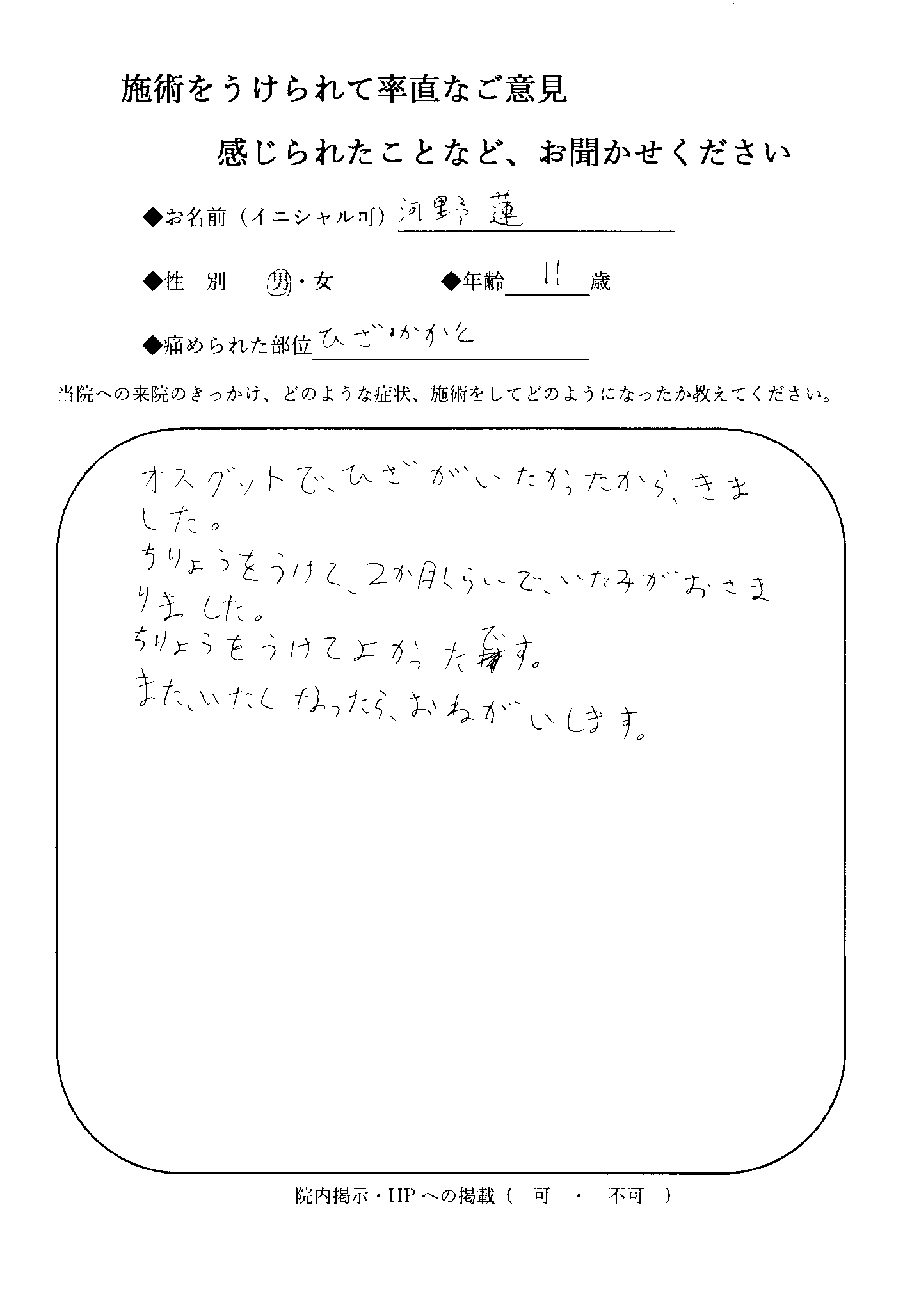 施術をうけられて率直なご意見
感じられたことなど、お聞かせください
◆お名前（イニシャル可）河野 蓮
◆性 別 男・女 ◆年齢 11 歳
◆痛められた部位 ひざ・かかと
当院への来院のきっかけ、どのような症状、施術をしてどのようになったか教えてください。
オスグットで、ひざがいたかったから、きま
した。
ちりょうをうけて、2か月くらいで、いたみがおさま
りました。
ちりょうをうけてよかったです。
また、いたくなったら、おねがいします。
院内掲示・HPへの掲載（ 可 ・ 不可 ）